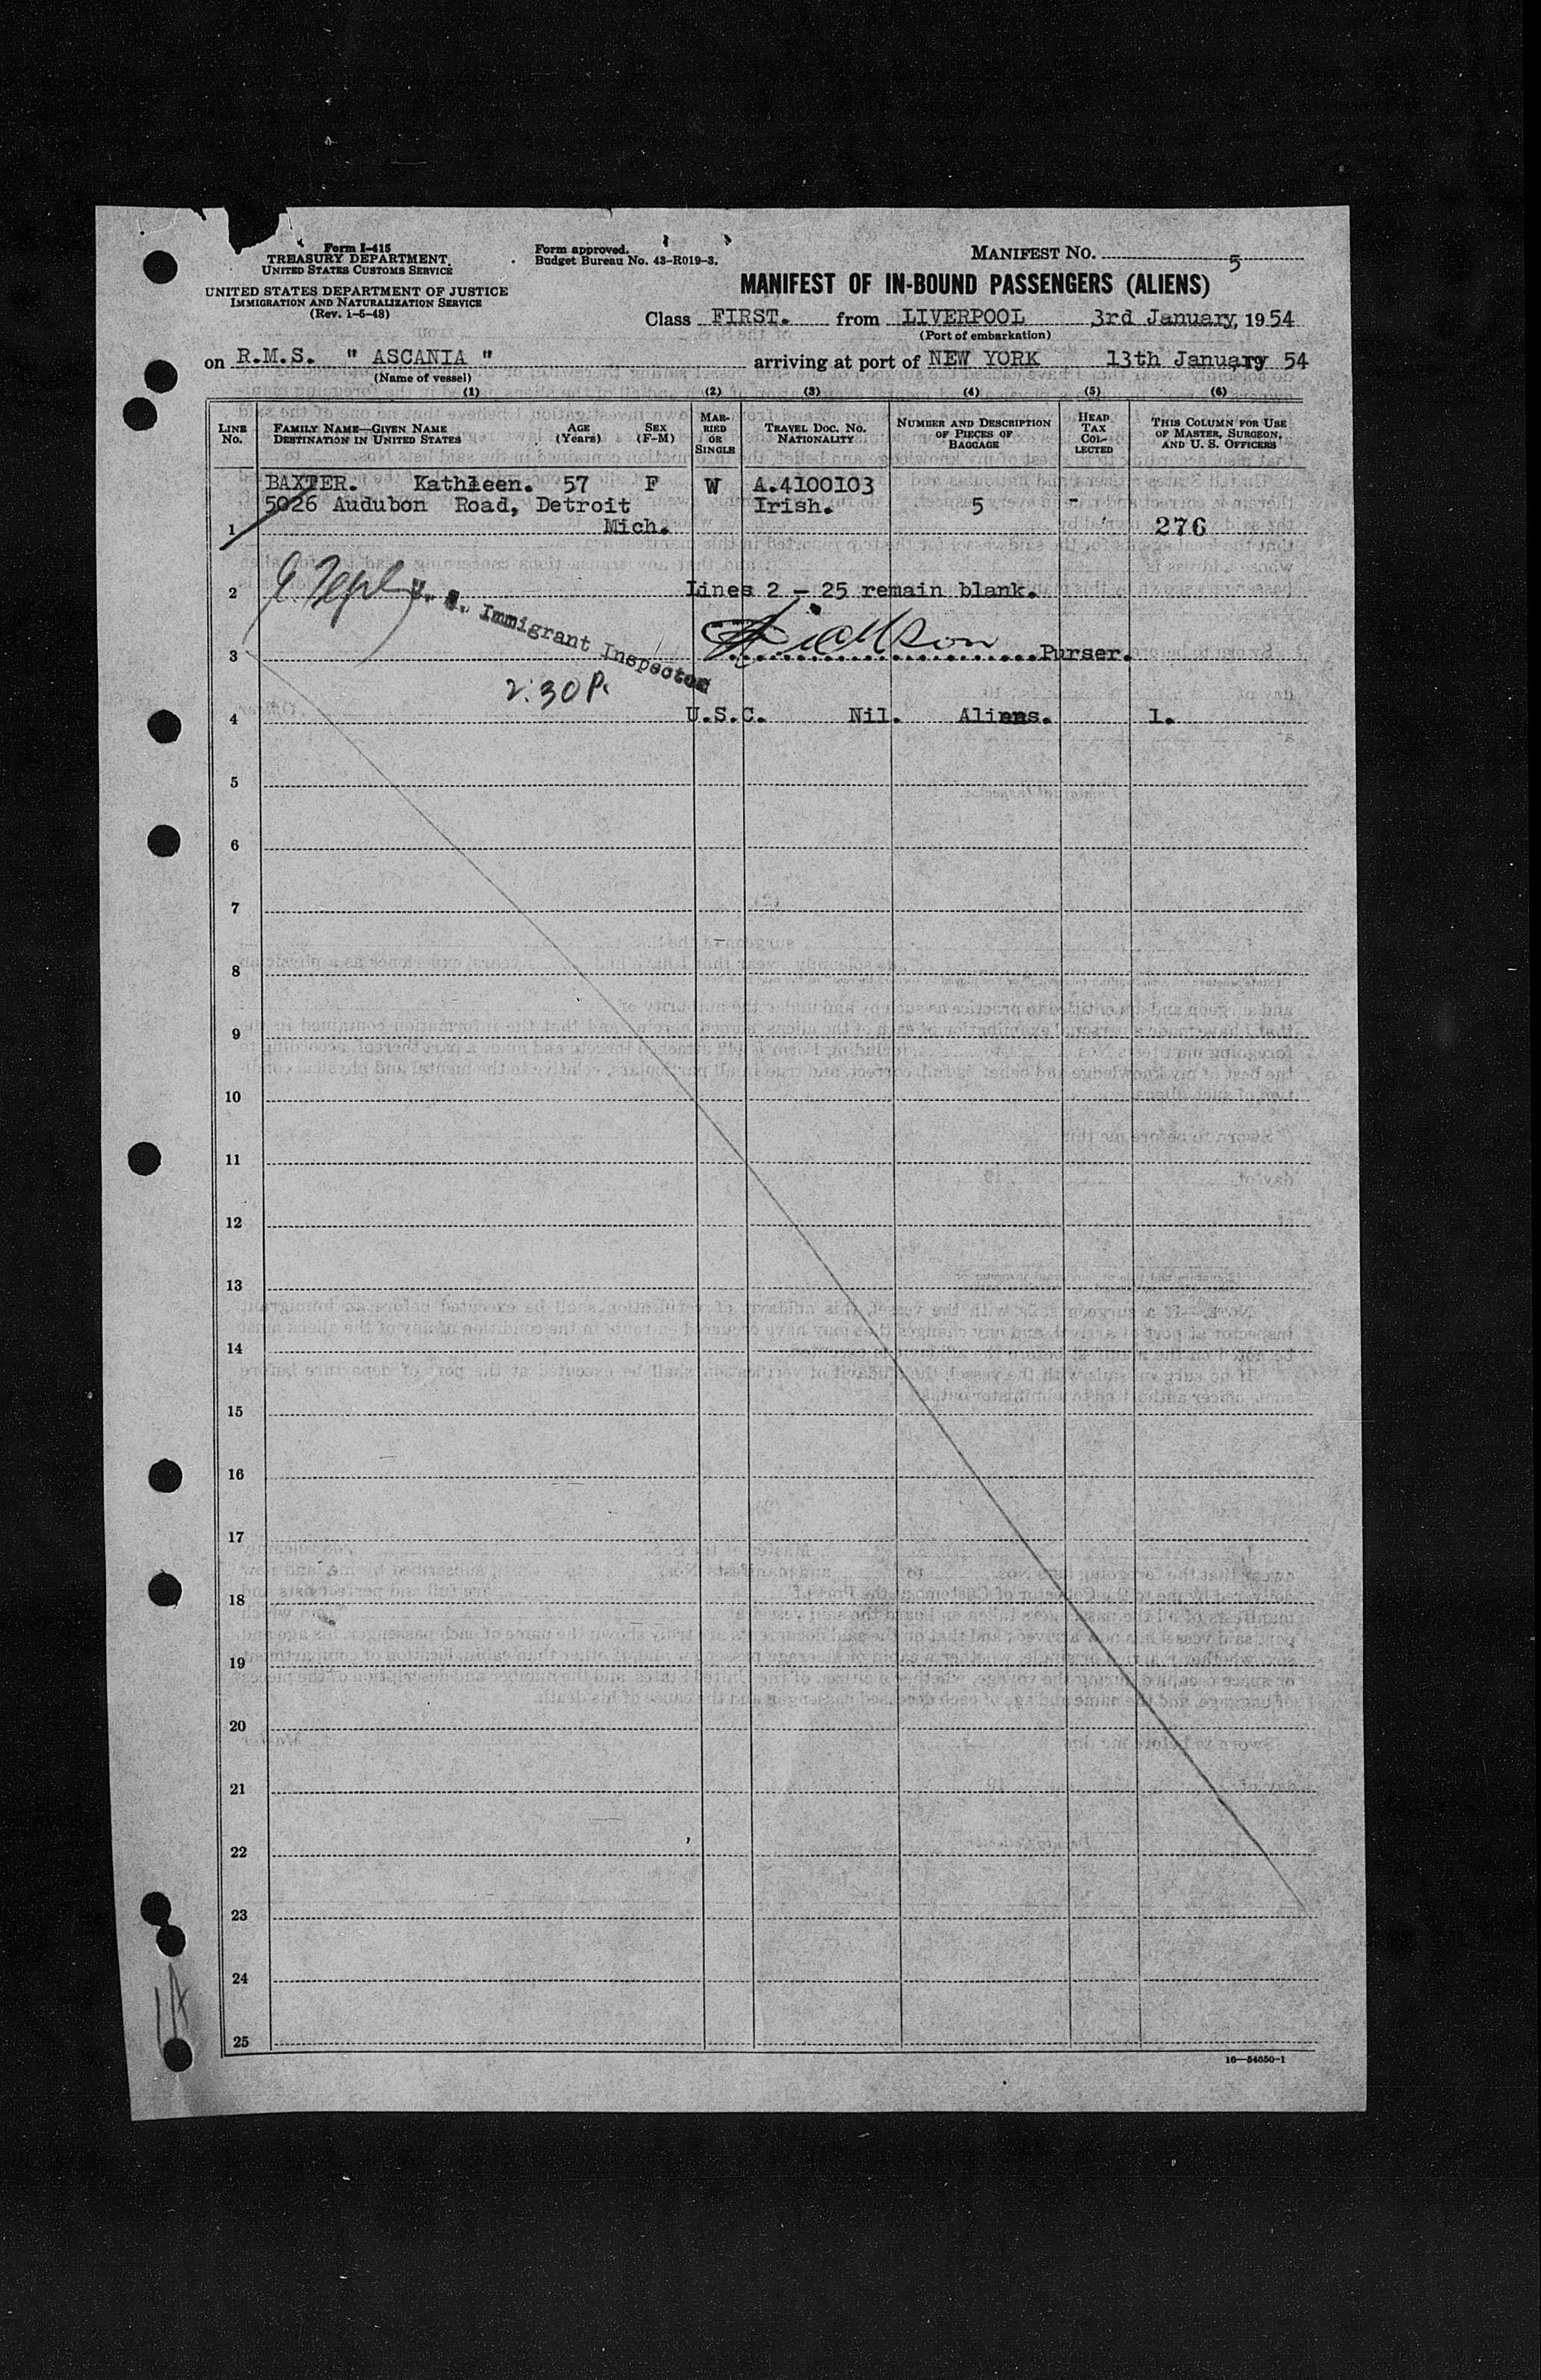 Form I-415
TREASURY DEPARTMENT
UNITED STATES CUSTOMS SERVICE
UNITED STATES DEPARTMENT OF JUSTICE
IMMIGRATION AND NATURALIZATION SERVICE
(Rev. 1-5-48)
Form approved.
Budget Bureau No. 43-R019-3.
MANIFEST NO. 5
MANIFEST OF IN-BOUND PASSENGERS (ALIENS)
Class FIRST. from LIVERPOOL 3rd January, 1954
(Port of embarkation)
on R.M.S. " ASCANIA " arriving at port of NEW YORK 13th January 19 54
(Name of vessel)
(1) (2) (3) (4) (5) (6)
LINE No. FAMILY NAME—GIVEN NAME DESTINATION IN UNITED STATES AGE (Years) SEX (F-M) MARRIED OR SINGLE TRAVEL DOC. NO. NATIONALITY NUMBER AND DESCRIPTION OF PIECES OF BAGGAGE HEAD TAX COLLECTED THIS COLUMN FOR USE OF MASTER, SURGEON, AND U. S. OFFICERS
BAXTER. Kathleen. 57 F W A.4100103
5026 Audubon Road, Detroit Irish. 5 -
1 Mich. 276
2 Lines 2 - 25 remain blank.
U. S. Immigrant Inspector
3 Purser.
2:30 P.
4 U.S.C. Nil. Aliens. 1.
5
6
7
8
9
10
11
12
13
14
15
16
17
18
19
20
21
22
23
24
25
16—54650-1